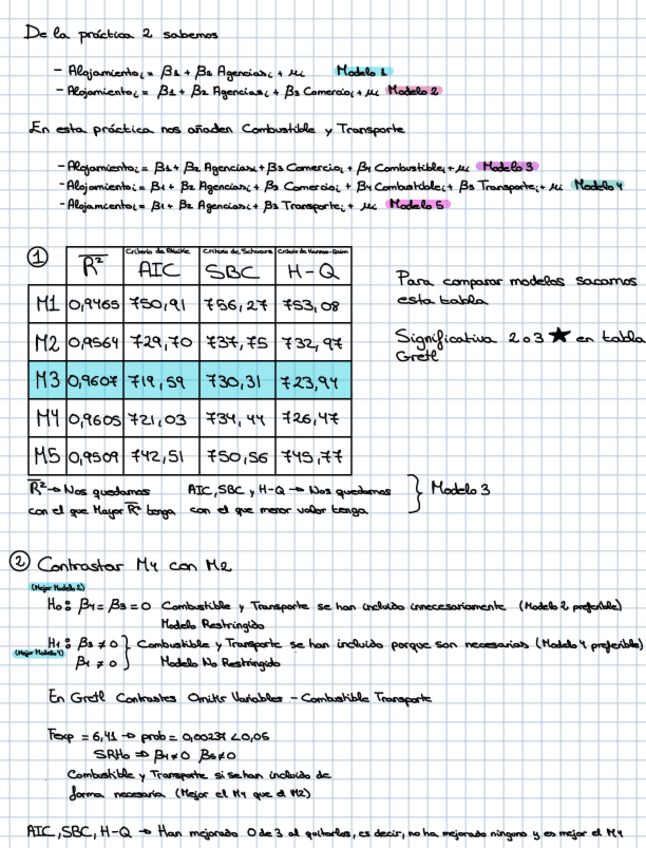 De la práctica 2 sabemos
- Alojamientoᵢ = β1 + β2 Agenciasᵢ + μᵢ Modelo 1
- Alojamientoᵢ = β1 + β2 Agenciasᵢ + β3 Comercioᵢ + μᵢ Modelo 2
En esta práctica nos añaden Combustible y Transporte
- Alojamientoᵢ = β1 + β2 Agenciasᵢ + β3 Comercioᵢ + β4 Combustibleᵢ + μᵢ Modelo 3
- Alojamientoᵢ = β1 + β2 Agenciasᵢ + β3 Comercioᵢ + β4 Combustibleᵢ + β5 Transporteᵢ + μᵢ Modelo 4
- Alojamientoᵢ = β1 + β2 Agenciasᵢ + β3 Transporteᵢ + μᵢ Modelo 5
① R̅² Criterio de Akaike AIC Criterio de Schwarz SBC Criterio de Hannan-Quinn H-Q
M1 0,9465 750,91 756,27 753,08
M2 0,9564 729,70 737,75 732,97
M3 0,9607 719,59 730,31 723,94
M4 0,9605 721,03 734,44 726,47
M5 0,9509 742,51 750,56 745,77
Para comparar modelos sacamos
esta tabla
Significativa 2 o 3 ★ en tabla
Gretl
R̅² → Nos quedamos
con el que Mayor R̅² tenga
AIC, SBC, y H-Q → Nos quedamos
con el que menor valor tenga
} Modelo 3
② Contrastar M4 con M2
(Mejor Modelo 2)
H0: β4 = β5 = 0 Combustible y Transporte se han incluido innecesariamente (Modelo 2 preferible)
Modelo Restringido
H1: β5 ≠ 0 } Combustible y Transporte se han incluido porque son necesarias (Modelo 4 preferible)
(Mejor Modelo 4)
β4 ≠ 0 Modelo No Restringido
En Gretl Contrastes Omitir Variables - Combustible Transporte
Fexp = 6,41 → prob = 0,00237 < 0,05
SRH0 ⇒ β4 ≠ 0 β5 ≠ 0
Combustible y Transporte si se han incluido de
forma necesaria (Mejor el M4 que el M2)
AIC, SBC, H-Q → Han mejorado 0 de 3 al quitarlos, es decir, no ha mejorado ninguno y es mejor el M4